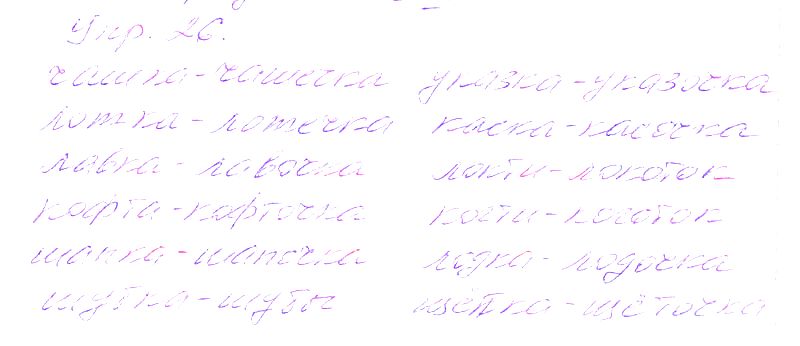 Упр. 26.
чашка - чашечка указка - указочка
ложка - ложечка каска - касочка
лавка - лавочка локти - локоток
кофта - кофточка когти - коготок
шапка - шапочка лодка - лодочка
шубка - шубы щётка - щёточка